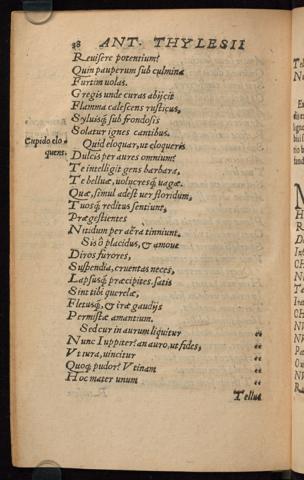 38 ANT. THYLESII
Reuisere potentium?
Quin pauperum sub culmina
Furtim uolas.
Gregis unde curas abijcit
Flamma calescens rusticus,
Syluisq; sub frondosis
Solatur ignes cantibus.
Cupido elo-
quens.
Quid eloquar, ut eloqueris
Dulcis per aures omnium?
Te intelligit gens barbara,
Te belluæ, uolucresq; uagæ.
Quæ, simul adest uer floridum,
Tuosq; reditus sentiunt,
Prægestientes
Nitidum per aëra tinniunt.
Sis ô placidus, & amoue
Diros furores,
Suspendia, cruentas neces,
Lapsusq; præcipites. satis
Sint tibi querelæ,
Fletusq;, & iræ gaudijs
Permistæ amantium.
Sed cur in aurum liquitur “
Nunc Iuppiter? an auro, ut fides, “
Vt iura, uincitur “
Quoq; pudor? Vtinam “
Hoc mater unum “
Tellus